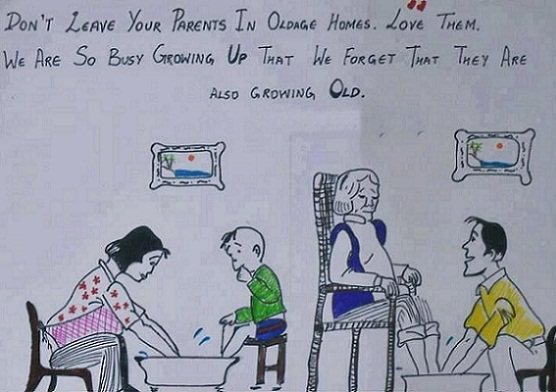 DON'T LEAVE YOUR PARENTS IN OLDAGE HOMES. LOVE THEM.
WE ARE SO BUSY GROWING UP THAT WE FORGET THAT THEY ARE
ALSO GROWING OLD.